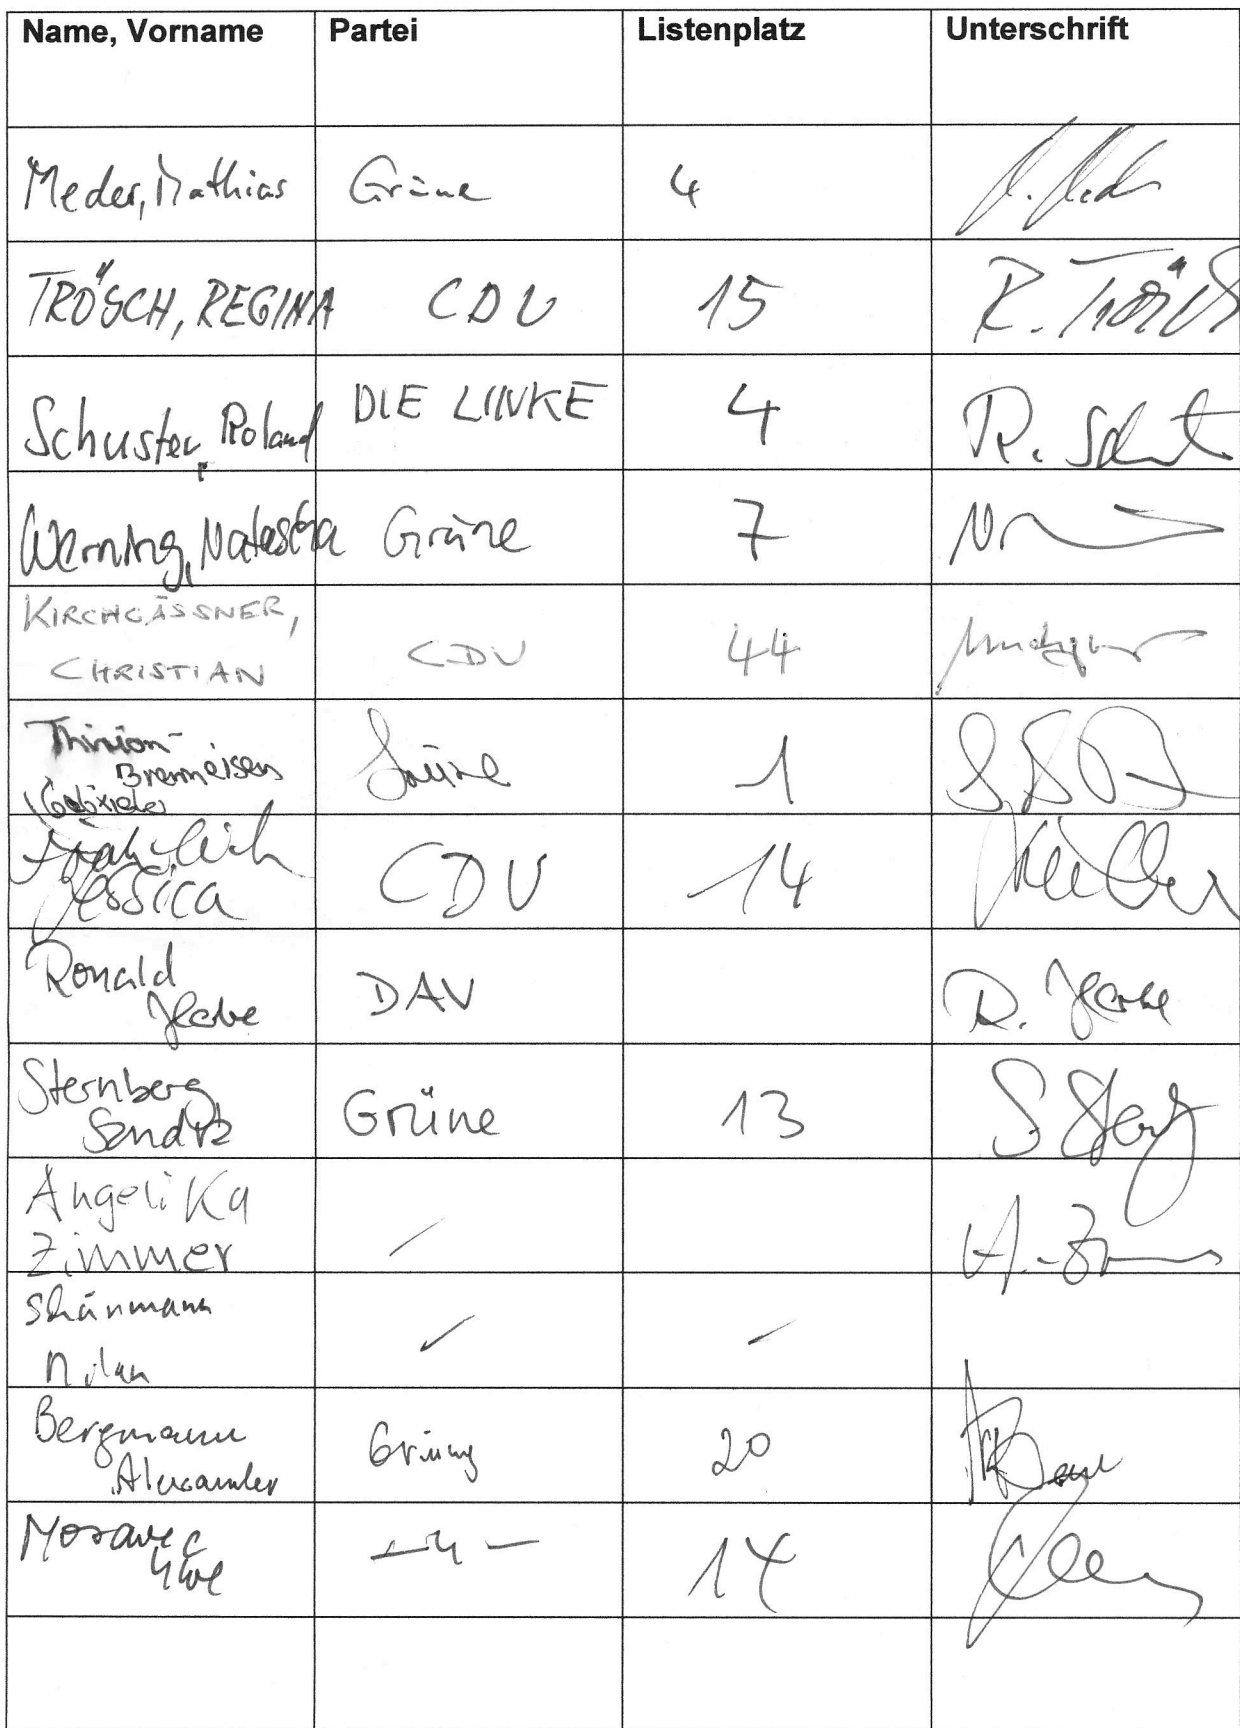 Name, Vorname Partei Listenplatz Unterschrift
Meder, Mathias Grüne 4
TRÖSCH, REGINA CDU 15 R. Trösch
Schuster, Roland DIE LINKE 4 R.
Werning, Natascha Grüne 7
KIRCHGÄSSNER,
CHRISTIAN CDU 44
Thirion-
Brenneisen Grüne 1
, Gabriele
Jessica CDU 14
Ronald DAV R.
Sternberg
Sandra Grüne 13 S
Angelika
Zimmer
Milan
Bergmann
Alexander Grüne 20
Moravec
Uwe — " — 14